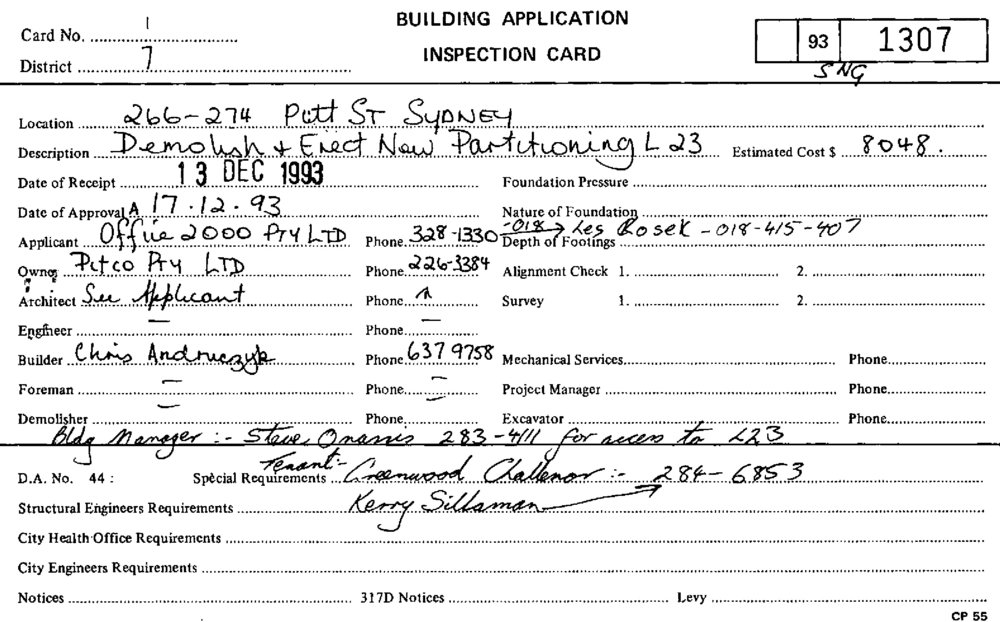 BUILDING APPLICATION
INSPECTION CARD
Card No. 1
District 7
93 1307
SNG
Location 266-274 Pitt ST SYDNEY
Description Demolish + Erect New Partitioning L 23 Estimated Cost $ 8048.
Date of Receipt 13 DEC 1993 Foundation Pressure
Date of Approval A 17.12.93 Nature of Foundation
Applicant Office 2000 PTY LTD Phone 328-1330 -018 → Les Bosek - 018-415-407
Depth of Footings
Owner Pitco Pty LTD Phone 226-3384 Alignment Check 1. 2.
Architect See Applicant Phone " Survey 1. 2.
Engineer — Phone —
Builder Chris Andruczyk Phone 637 9758 Mechanical Services Phone
Foreman — Phone — Project Manager Phone
Demolisher — Phone — Excavator Phone
Bldg Manager :- Steve Onassis 283-4111 for access to L23
D.A. No. 44 : Special Requirements Tenant:- Greenwood Challenor :- 284-6853
Structural Engineers Requirements Kerry Sillaman
City Health Office Requirements
City Engineers Requirements
Notices 317D Notices Levy
CP 55